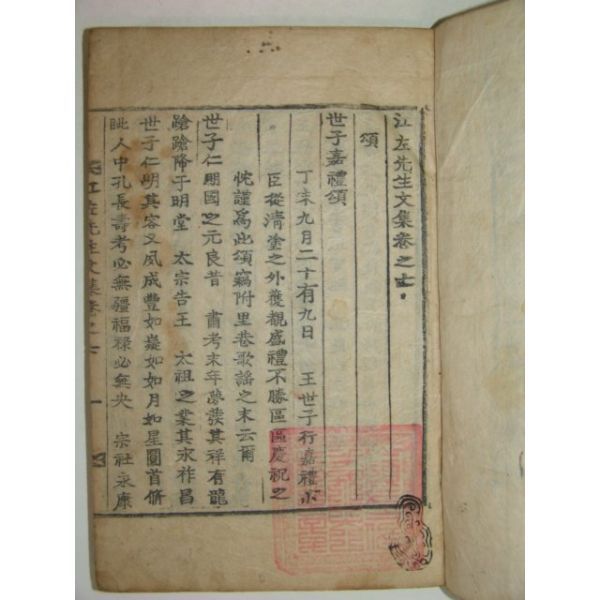 江左先生文集卷之七
頌
世子嘉禮頌
丁未九月二十有九日 王世子行嘉禮小
臣從淸塗之外獲覩盛禮不勝區區慶祝之
忱謹爲此頌竊附里巷歌謠之末云爾
世子仁明國之元良昔 肅考末年夢發其祥有龍
蹌蹌降于明堂 太宗告王 太祖之業其永祚昌
世子仁明其容又夙成豊如嶽如如月如星圓首脩
眦人中孔長壽考必無疆福祿必無央 宗社永康
江左先生文集卷之七 一